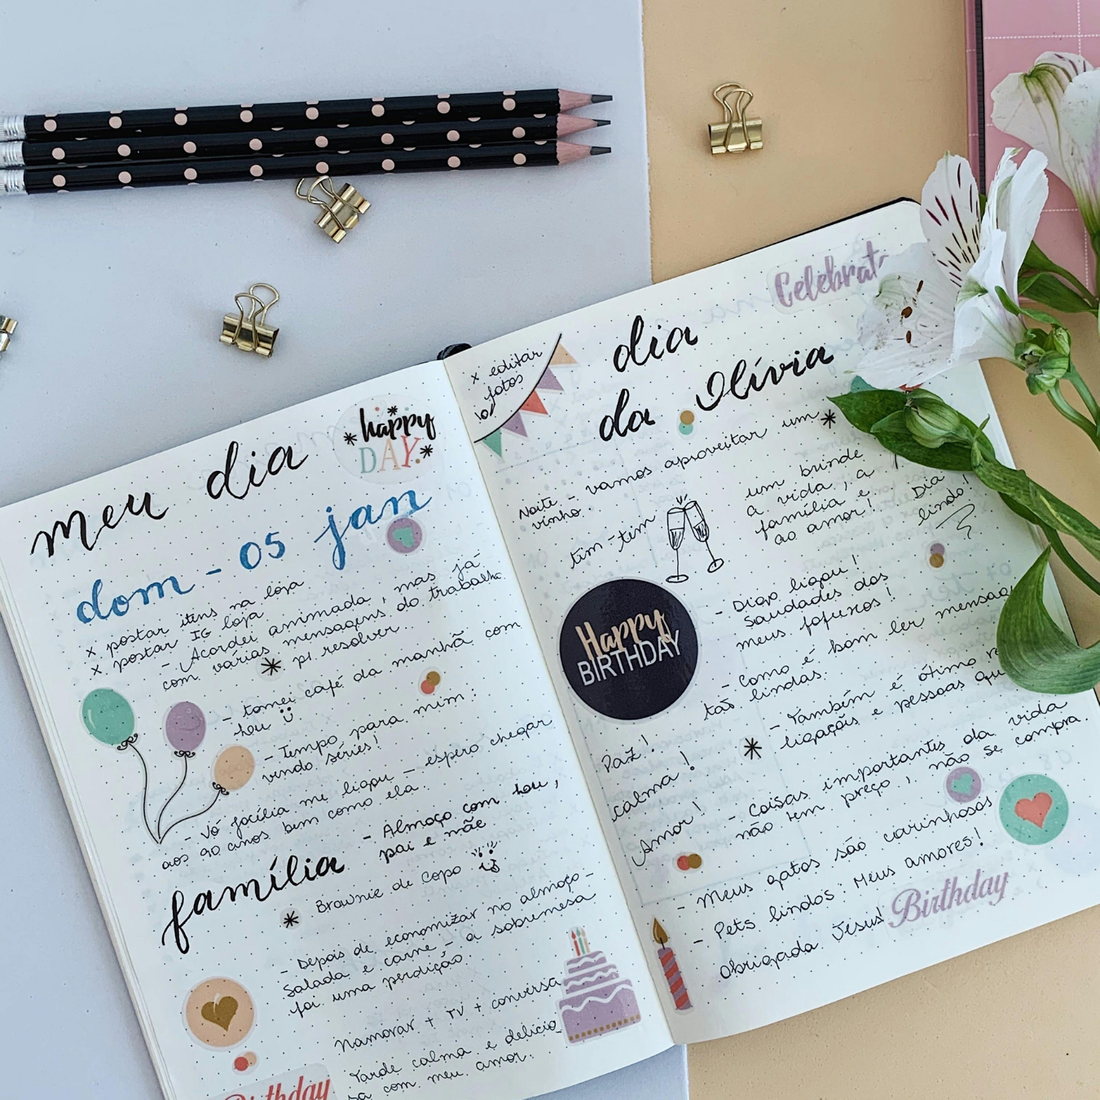 meu dia
happy
DAY.
dom - 05 jan
x postar itens na loja
x postar IG loja
- Acordei animada, mas já
com várias mensagens do trabalho
p/ resolver.
- tomei café da manhã com
heu
- Tempo para mim:
vindo séries!
- Vó Jacília me ligou - espero chegar
aos 90 anos bem como ela.
família
- Almoço com heu,
pai e mãe
Brownie de Copo
- Depois de economizar no almoço -
Salada e carne - a sobremesa
foi uma perdição.
Namorar + TV + conversa
Tarde calma e delicio
sa com meu amor.
Birthday
x editar
fotos
Celebrat
dia
da Olívia
Noite - vamos aproveitar um
vinho.
tim-tim
um brinde
a vida, a
família e
ao amor!
Dia
lindo!
Happy
BIRTHDAY
- Diogo ligou!
Saudades dos
meus fofuxos!
- Como é bom ler mensag
tão lindas.
- Também é ótimo
ligações e pessoas qu
Paz!
calma!
Amor!
- Coisas importantes da vida
não tem preço, não se compra.
- Meus gatos são carinhosos
- Pets lindos. Meus amores!
Obrigada Jesus!
Birthday